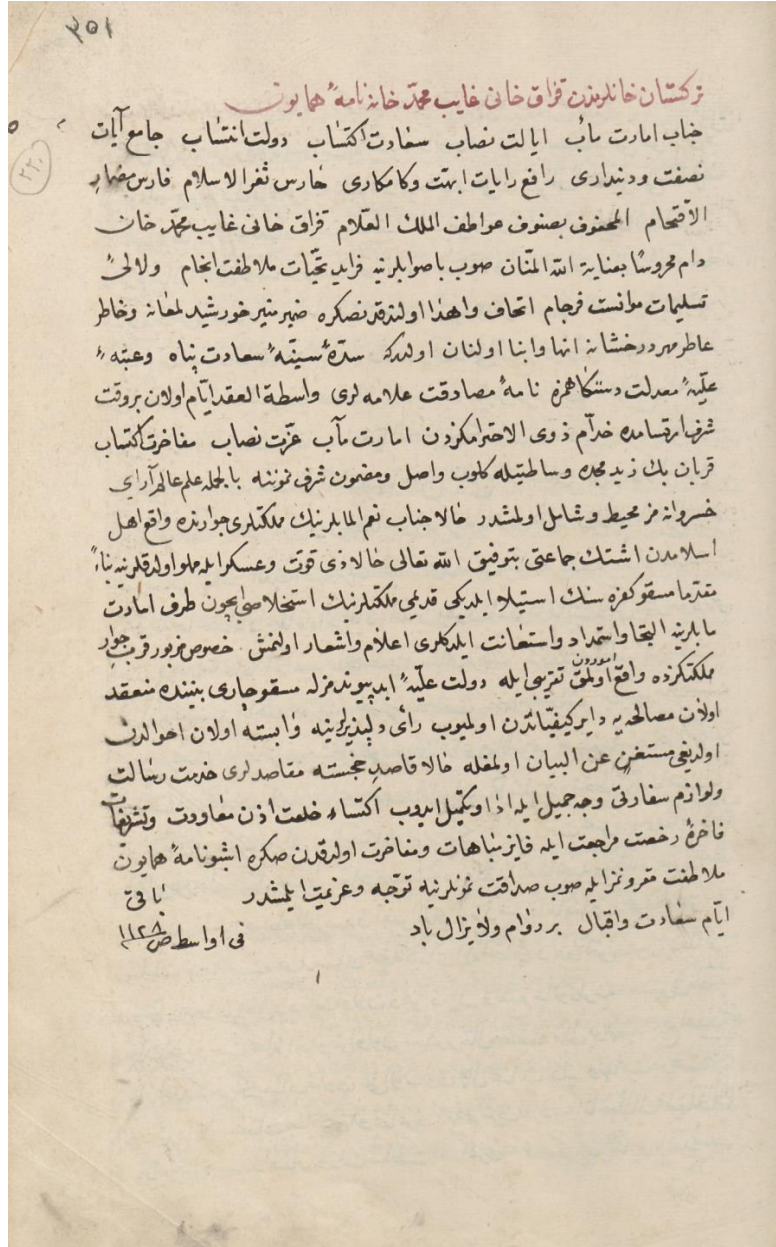 ٣٥١
٢٢٠
تركستان خانلرندن قزاق خانى غايب محمد خانه نامهٔ همايون
جناب امارت مآب ايالت نصاب سعادت اكتساب دولت انتساب جامع آيات
نصيفت ودينداى رافع رايات ابهت وكامكارى حارس ثغر الاسلام فارس مضمار
الاقتحام المحفوف بصنوف عواطف الملك العلام قزاق خانى غايب محمد خان
دام محروسًا بعناية الله المنان صوب باصوابلرينه فرايد تحيات ملاطفت انجام ولالئ
تسليمات موانست فرجام اتحاف واهدا اولندقدنصكره ضمير منير خورشيد لمعانه وخاطر
عاطر مهر درخشانه انها وابنا اولنان اولدركه سدهٔ سنيهٔ سعادت پناه وعتبهٔ
عليهٔ معدلت دستكاهمزه نامهٔ مصادقت علامه لرى واسطة العقد ايام اولان بروقت
شرف ارتسامده خدام ذوى الاحترامكزدن امارت مآب عزت نصاب مفاخرت اكتساب
قربان بك زيد مجده وساطتيله كلوب واصل ومضمون شرف نموننه بالجمله علم عالم آراى
خسروانه مز محيط وشامل اولمشدر حالا جناب نعم المابلرينك مملكتلرى جوارنده واقع اهل
اسلامدن اشتك جماعتى بتوفيق الله تعالى حالا ذى قوت وعسكر ايله مملو اولدقلرينه بناءً
مقدما مسقو كفره سنك استيلا ايلديكى قديمى مملكتلرينك استخلاصى ايچون طرف امارت
مابلرينه التجا واستمداد واستعانت ايلدكلرى اعلام واشعار اولنمش خصوص مزبور قرب جوار
مملكتكزده واقع اموردن اولمق تقريبى ايله دولت عليهٔ ابد پيوندمزله مسقو چارى بيننده منعقد
اولان مصالحه يه داير كيفياتدن اولميوب رأى دلپذيرلرينه وابسته اولان احوالدن
اولديغى مستغن عن البيان اولمغله حالا قاصد خجسته مقاصدلرى خدمت رسالت
ولوازم سفارتى وجه جميل ايله ادا وتكميل ايدوب اكتساء خلعت اذن معاودت وتشريفات
فاخرهٔ رخصت مراجعت ايله فايز مباهات ومفاخرت اولدقدن صكره اشبو نامهٔ همايون
ملاطفت مقرونمز ايله صوب صداقت نمونلرينه توجه وعزيمت ايلمشدر باقى
ايام سعادت واقبال بر دوام ولا يزال باد فى اواسط ص ١١٢٨